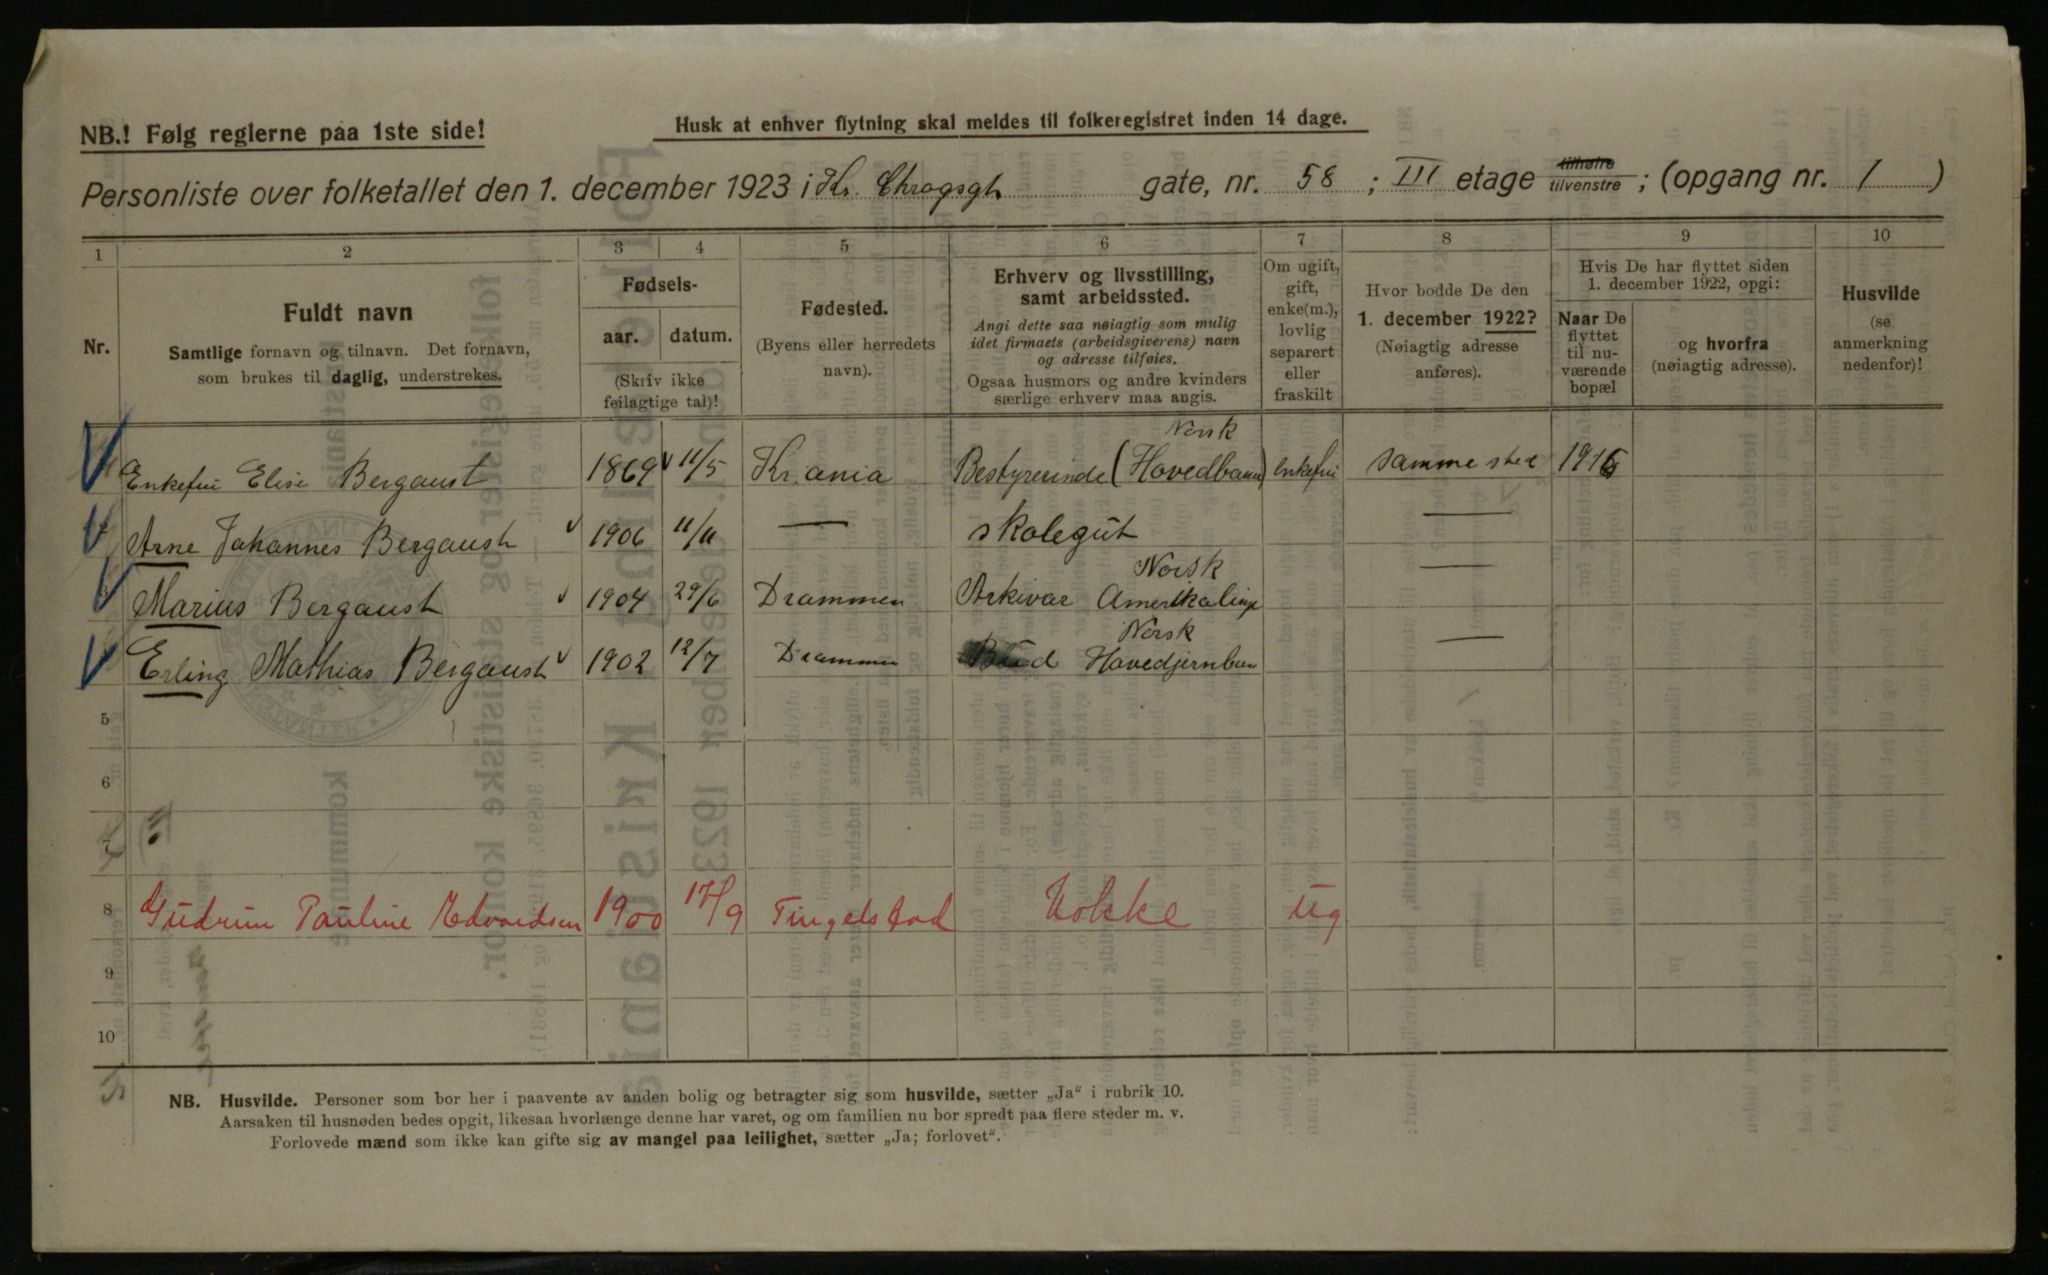 NB.! Følg reglerne paa 1ste side!
Husk at enhver flytning skal meldes til folkeregistret inden 14 dage.
Personliste over folketallet den 1. december 1923 i Kr. gate, nr. 58 ; III etage tilhøire tilvenstre ; (opgang nr. 1 )
1 2 3 4 5 6 7 8 9 10
Nr.
Fuldt navn
Samtlige fornavn og tilnavn. Det fornavn,
som brukes til daglig, understrekes.
Fødsels-
aar. datum.
(Skriv ikke
feilagtige tal)!
Fødested.
(Byens eller herredets
navn).
Erhverv og livsstilling,
samt arbeidssted.
Angi dette saa nøiagtig som mulig
idet firmaets (arbeidsgiverens) navn
og adresse tilføies.
Ogsaa husmors og andre kvinders
særlige erhverv maa angis.
Om ugift,
gift,
enke(m.),
lovlig
separert
eller
fraskilt
Hvor bodde De den
1. december 1922?
(Nøiagtig adresse
anføres).
Hvis De har flyttet siden
1. december 1922, opgi:
Naar De
flyttet
til nu-
værende
bopæl
og hvorfra
(nøiagtig adresse).
Husvilde
(se
anmerkning
nedenfor)!
Norsk
Enkefru Elise Bergaust 1869 11/5 Kr.ania Bestyrerinde (Hovedbane) enkefru samme sted
Arne Johannes Bergaust 1906 11/11 — skolegut —
Norsk
Marius Bergaust 1904 29/6 Drammen Arkivar Amerikalinje —
Norsk
Erling Mathias Bergaust 1902 12/7 Drammen Bud Hovedjernban —
5
6
7
8 Gudrun Pauline Edvardsen 1900 17/9 Tingelstad Kokke Ug
9
10
NB. Husvilde. Personer som bor her i paavente av anden bolig og betragter sig som husvilde, sætter „Ja“ i rubrik 10.
Aarsaken til husnøden bedes opgit, likesaa hvorlænge denne har varet, og om familien nu bor spredt paa flere steder m. v.
Forlovede mænd som ikke kan gifte sig av mangel paa leilighet, sætter „Ja; forlovet“.